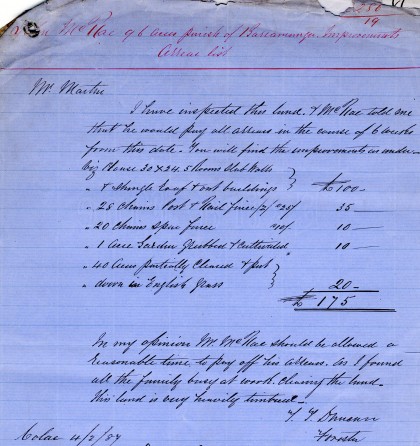 19
McRae 96 acres parish of Barramunga Improvements
Arrears list
Mr. Martin
I have inspected this land. & McRae told me
that he would pay all arrears in the course of 6 weeks
from this date. You will find the improvements as under
viz House 30 x 24. 5 Rooms Slab Walls
" & Shingle Roof & out buildings } £100 —
" 28 chains Post & Rail fence 25/ 35 —
" 20 chains Spur fence 10/ 10 —
" 1 acre Garden Grubbed & Cultivated 10 —
" 40 Acres partially Cleared & put
" down in English Grass } 20 —
£ 175
In my opinion Mr McRae should be allowed a
reasonable time to pay off his arrears. As I found
all the family busy at work. Clearing the land.
This land is very heavily timbered —
Forester
Colac 4/2/87